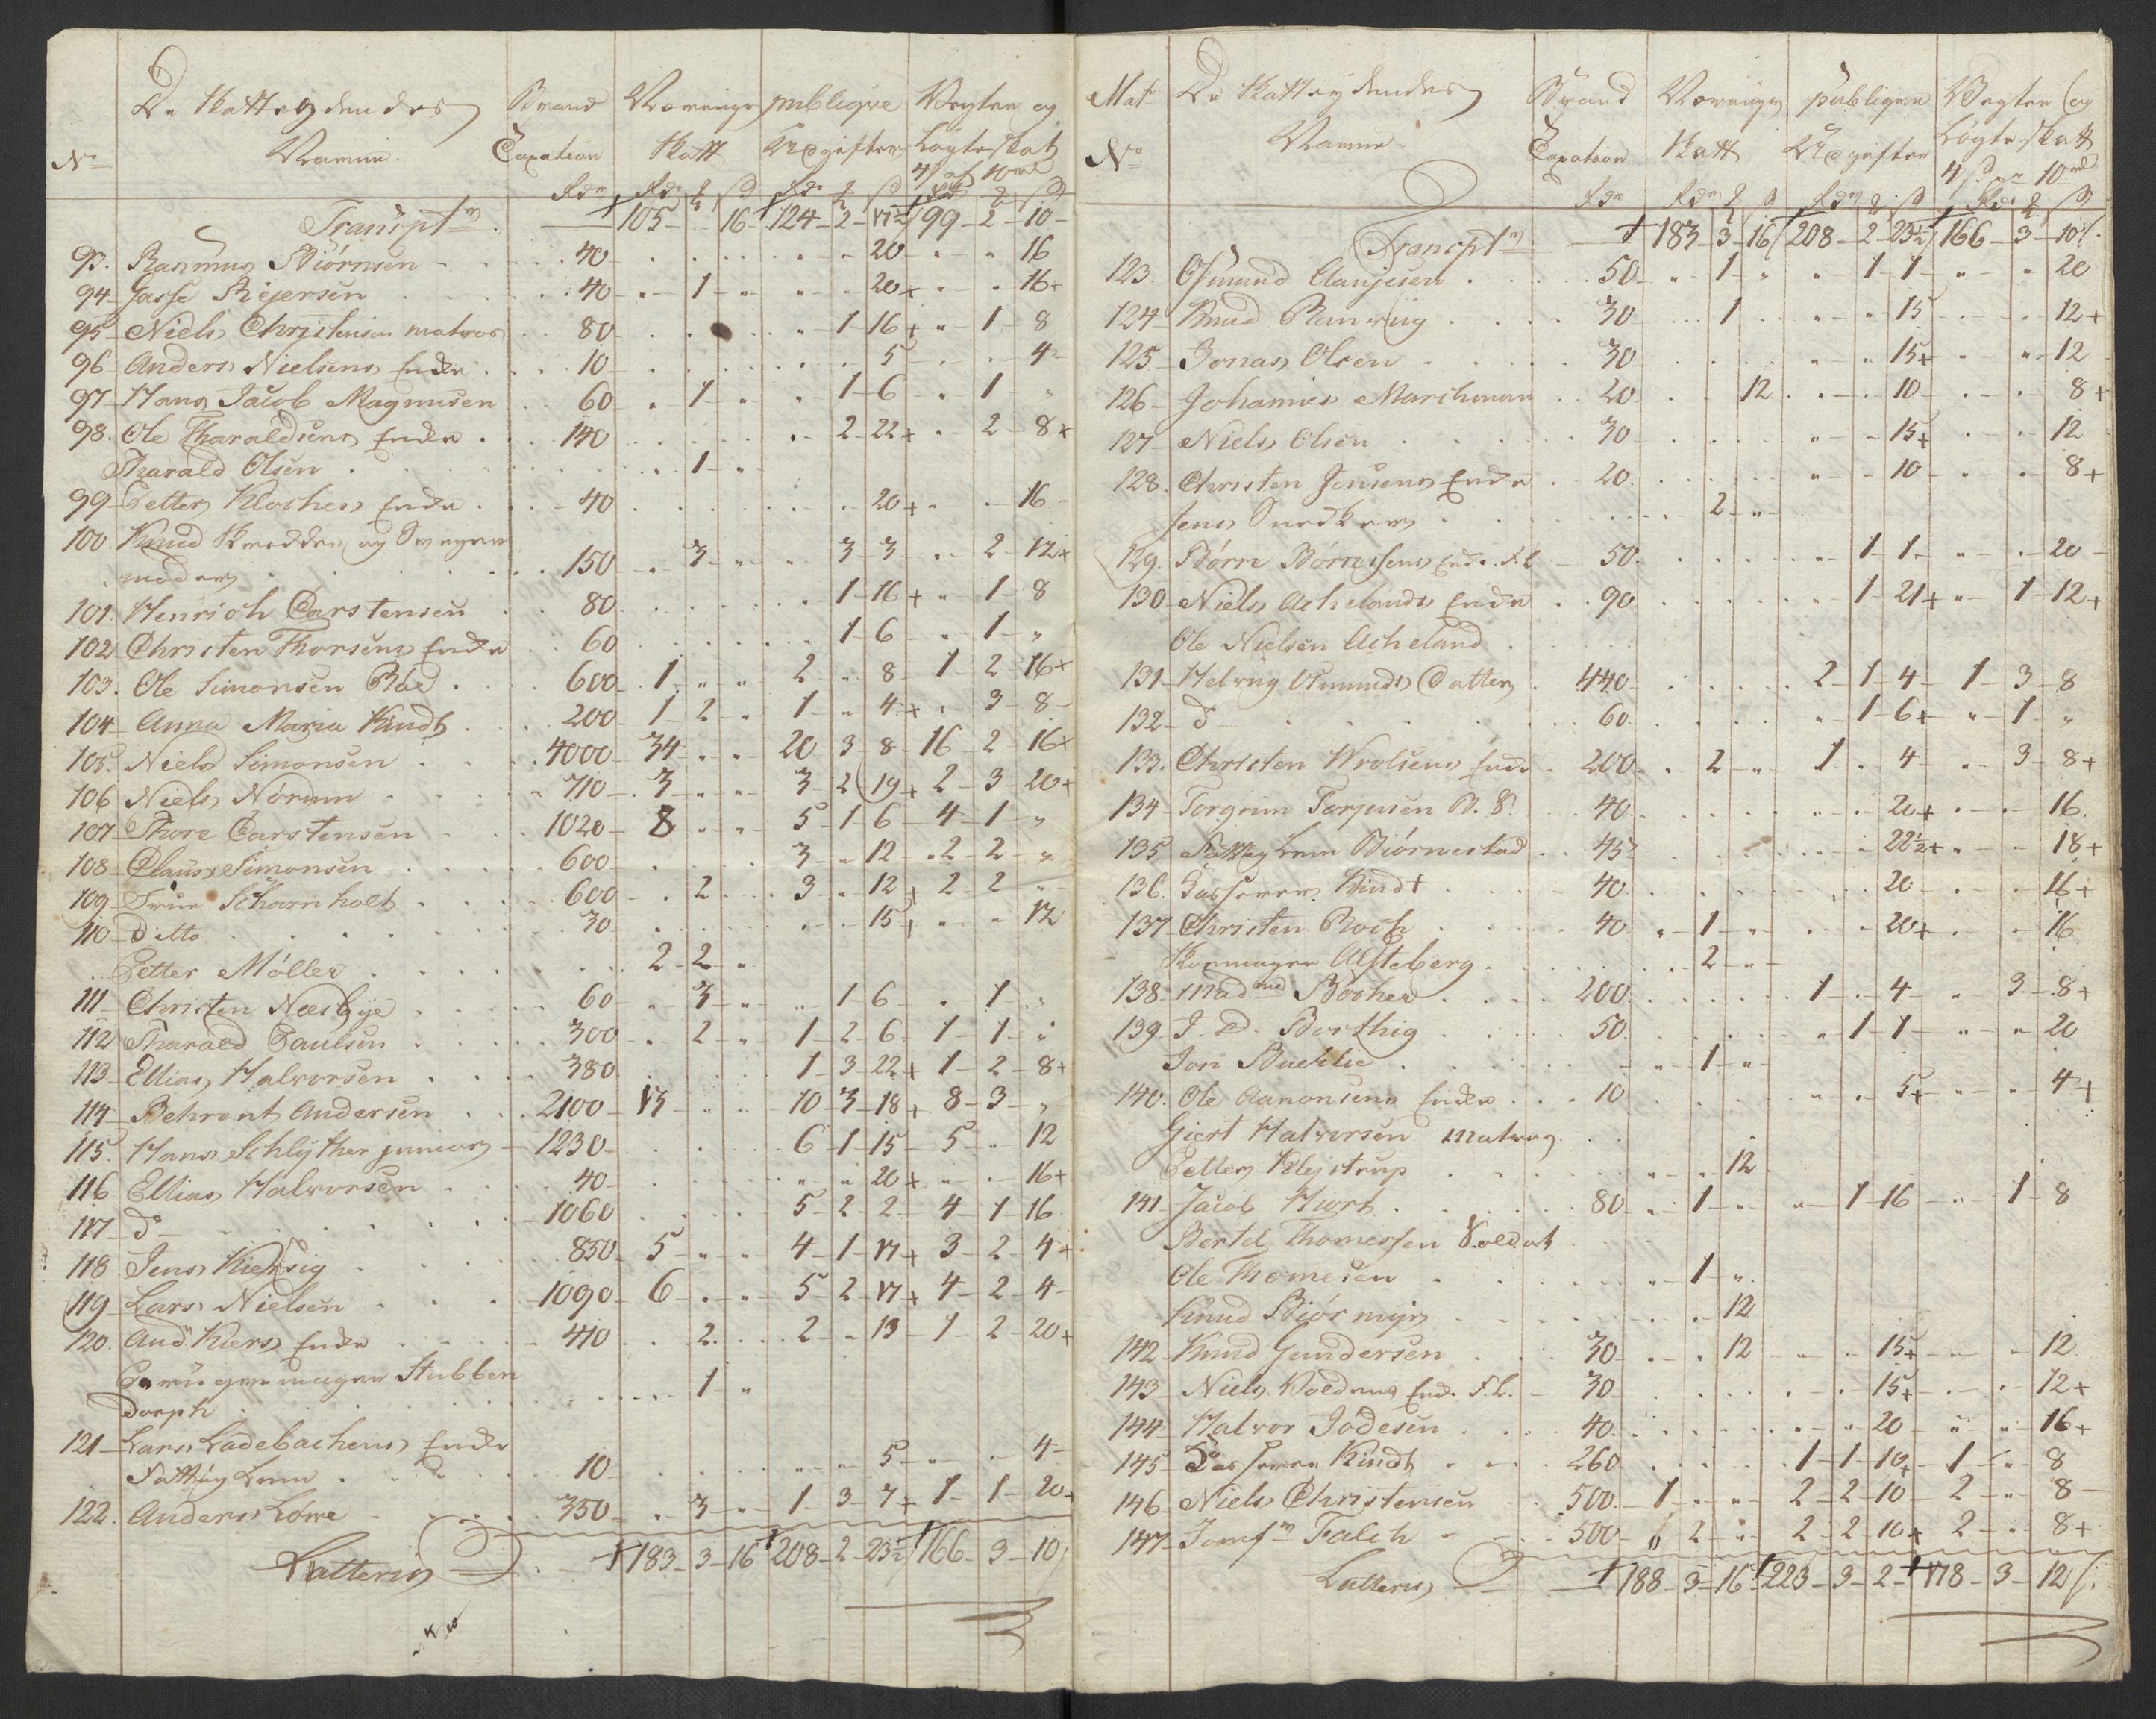 De Skatteydendes Brand Nærings publiqve Vegter og
No Nafne. Taxation Skatt Udgifter Løgteskat
4 s af 10 rd
Rdr Rdr s Rdr s Rdr s
Transpt 105 - 16 124 - 2 - 17½ 99 - 2 - 10
93. Rasmus Biørnsen 40 20 16
94 Jasse Rejersen 40 1 20 + 16
95 Niels Christensen matros 80 1 - 16 + 1 - 8
96 Anders Nielsens Enke 10 5 4
97 Hans Jacob Magnusen 60 1 1 - 6 1
98. Ole Tharaldsens Enke 140 2 - 22 + 2 - 8 +
Tharald Olsen 1
99 Petter Klochers Enke 40 20 + 16
100. Knud og Svigermoder 150 3 3 - 3 2 - 12 +
101. Henrich Carstensen 80 1 - 16 + 1 - 8
102 Christen Thorsens Enke 60 1 - 6 1
103. Ole Simonsen Røe 600 1 2 - 8 1 - 2 - 16 +
104 Anna Maria Kindt 200 1 - 2 1 - 4 + 3 - 8
105. Niels Simonsen 4000 34 20 - 3 - 8 16 - 2 - 16 +
106 Niels Nörum 710 3 3 - 2 - 19 + 2 - 3 - 20 +
107 Thore Carstensen 1020 8 5 - 1 - 6 4 - 1
108 Claus Simonsen 600 3 - 12 2 - 2
109 Frue Scharnholt 600 2 3 - 12 + 2 - 2
110 Ditto 30 15 + 12
Petter Möller 2 - 2
111 Christen Næsbye 60 3 1 - 6 1
112 Tharald Paulsen 300 2 1 - 2 - 6 1 - 1
113 Ellias Halvorsen 380 1 - 3 - 22 + 1 - 2 - 8 +
114 Behrent Andersen 2100 13 10 - 3 - 18 + 8 - 3
115. Hans Schlÿther junior 1230 6 - 1 - 15 5 - 12
116 Ellias Halvorsen 40 20 + 16 +
117 do 1060 5 - 2 - 2 4 - 1 - 16
118 Jens Kiersig 850 5 4 - 1 - 17 + 3 - 2 - 4 +
119 Lars Nielsen 1090 6 5 - 2 - 17 + 4 - 2 - 4
120. And. Kiers Enke 410 2 2 - 13 1 - 2 - 20 +
Stubben
dorph 1
121 Lars Ladebachers Enke
Fattig Lem 10 5 4
122. Anders Löwe 350 3 1 - 3 - 7 + 1 - 1 - 20 +
Latteris 183 - 3 - 16 208 - 2 - 23½ 166 - 3 - 10
Mat De Skatteydendes Brand Nærings publiqve Vegter og
No Nafne Taxation Skatt Udgifter Løgteskatt
4 s pr 10 rd
Rdr Rdr s Rdr s Rdr s
Transpt 183 - 3 - 16 208 - 2 - 23½ 166 - 3 - 10
123. Osmund Aanjesen 50 1 1 - 1 20
124 Knud 30 1 15 12 +
125 Jonas Olsen 30 15 + 12
126 Johannes Marchman 20 12 10 8 +
127 Niels Olsen 30 15 + 12
128. Christen Jensens Enke 20 10 8 +
Jens Snedker 2
129. Börre Börresens Enke F.L. 50 1 - 1 20
130 Niels Achelands Enke 90 1 - 21 + 1 - 12 +
Ole Nielsen Acheland
131 Helvig Asmunds Datter 440 2 - 1 - 4 1 - 3 - 8
132 do 60 1 - 6 + 1
133. Christen Wrolsens Enke 200 2 1 - 4 3 - 8 +
134 Torgrim Torjusen 40 20 + 16
135 Fattig Lem Biörnestad 45 22½ + 18 +
136. Kindt 40 20 16 +
137 Christen Roch 40 1 20 + 16
Alsteberg 2
138 Mad. Böcher 200 1 - 4 3 - 8 +
139 J. D. Berthig 50 1 - 1 20
Jon 1
140. Ole Aanonsens Enke 10 5 + 4 +
Giert Halvorsen Matros
Petter Klejstrup 12
141 Jacob Hiort 80 1 1 - 16 1 - 8
Bertel Thomessen Soldat
Ole Thomesen 1
Knud Biörmijr 12
142 Knud Gundersen 30 12 15 + 12
143 Niels Enke F.L. 30 15 + 12 +
144 Halvor Jödesen 40 20 16 +
145 Kindt 260 1 - 1 - 10 + 1 8
146 Niels Christensen 500 1 2 - 2 - 10 2 8
147 Jomf. Falch 500 2 2 - 2 - 10 + 2 8 +
Latteris 188 - 3 - 16 223 - 3 - 2 178 - 3 - 12